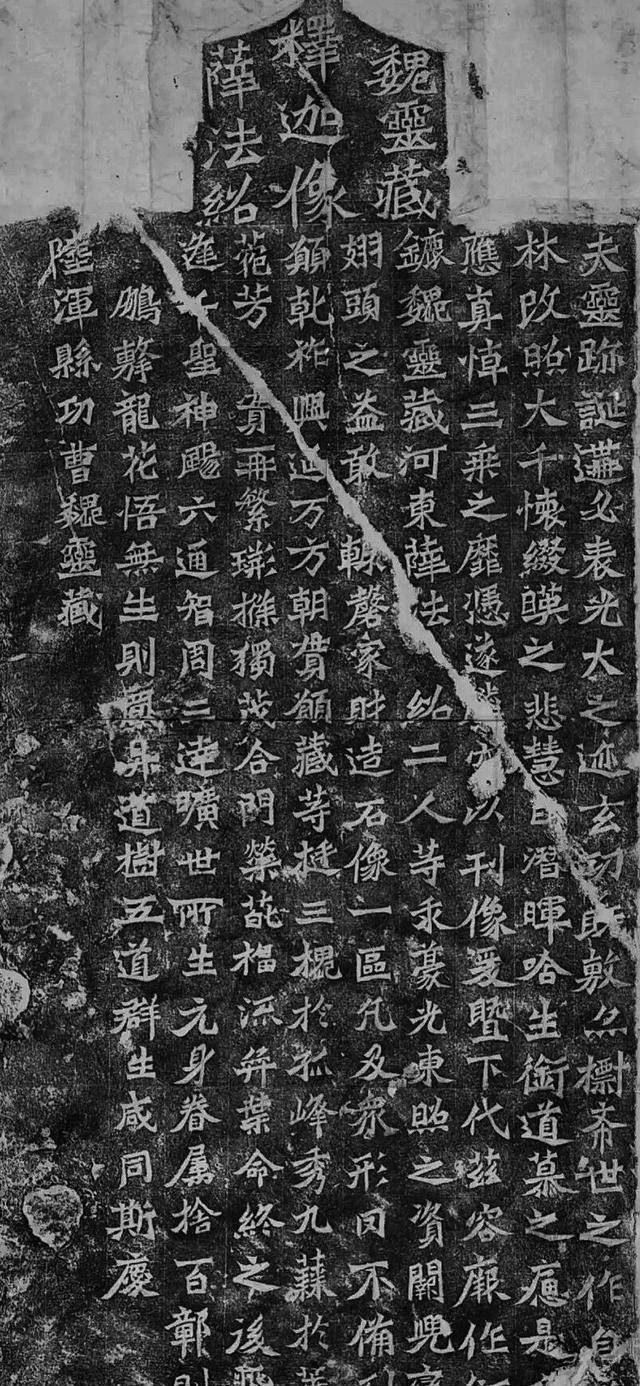 魏靈藏
釋迦像
薩法紹
夫靈跡誕遘必表光大之迹玄功既敷亦標希世之作自
林改照大千懷綴暎之悲慧日潛暉唅生銜道慕之痛是
應真悼三乘之靡憑遂以刊像爰暨下代茲容厥作
鑣魏靈藏河東薩法紹二人等求豪光東照之資闕兜率
翅頭之益敢輒磬家財造石像一區凡及衆形罔不備
願乾祚興延万方朝貫願藏等挺三槐於孤峰秀九蕀於華
菀芳實再繁璀搽獨茂合門榮葩福流弈葉命終之後飛
逢千聖神颺六通智周三達曠世所生元身眷屬捨百鄣則
鵬擊龍花悟無生則鳳昇道樹五道群生咸同斯慶
陸渾縣功曹魏靈藏